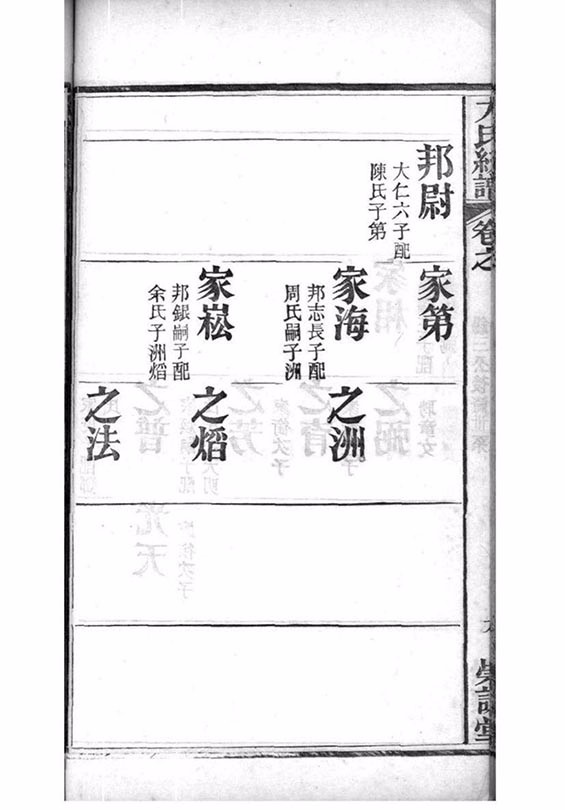 邦尉
大仁六子配
陳氏子第
家第
家海
邦志長子配
周氏嗣子洲
家崧
邦銀嗣子配
余氏子洲熖
之洲
之熖
之法
氏續譜
卷之